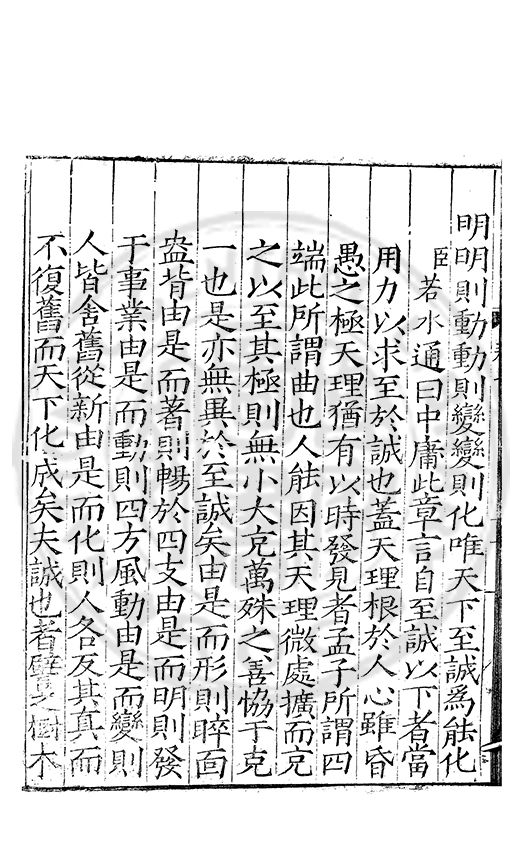 明明則動動則變變則化唯天下至誠為能化
臣若水通曰中庸此章言自至誠以下者當
用力以求至於誠也蓋天理根於人心雖昏
愚之極天理猶有以時發見者孟子所謂四
端此所謂曲也人能因其天理微處擴而充
之以至其極則無小大克萬殊之善協于克
一也是亦無異於至誠矣由是而形則睟面
盎背由是而著則暢於四支由是而明則發
于事業由是而動則四方風動由是而變則
人皆舍舊從新由是而化則人各反其真而
不復舊而天下化成矣夫誠也者譬之樹木